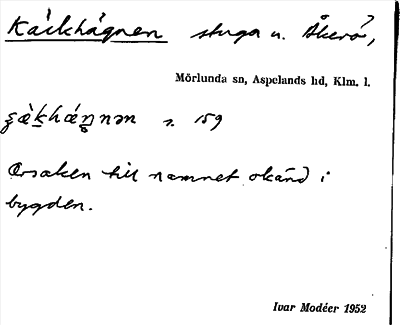 Käckhägnen stuga u. Åkerö,
Mörlunda sn, Aspelands hd, Klm. l.
s. 159
Orsaken till namnet okänd i
bygden.
Ivar Modéer 1952